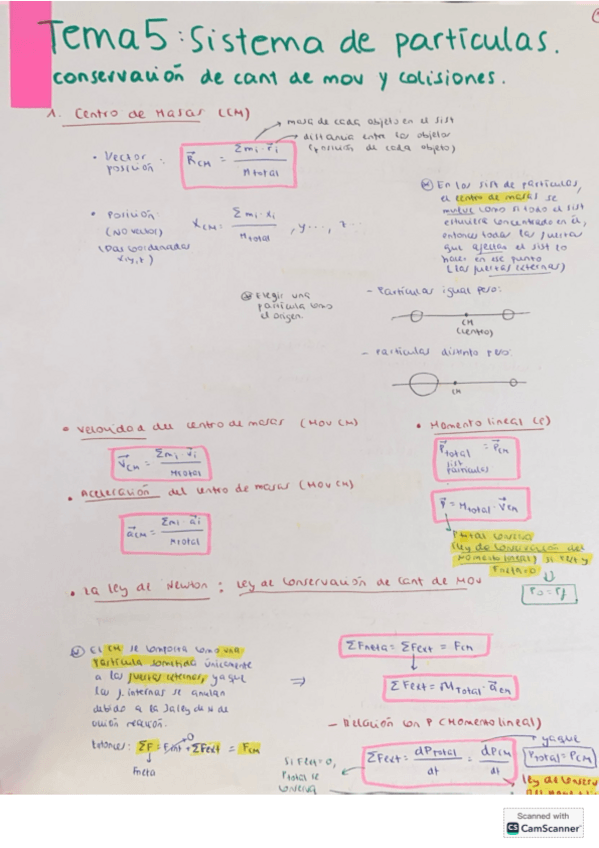 Tema 5: Sistema de partículas.
conservación de cant de mov y colisiones.
1. Centro de Masas (CM)
→ masa de cada objeto en el sist
→ distancia entre los objetos
(posición de cada objeto)
• Vector posición:
R⃗CM = Σmi · r⃗i / Mtotal
• Posición:
(NO vector)
(Das coordenadas
x,y,z)
XCM = Σmi · xi / Mtotal , y..., z...
En los sist de partículas,
el centro de masas se
mueve como si todo el sist
estuviera concentrado en él,
entonces todas las fuerzas
que afectan el sist lo
hacen en ese punto
(las fuerzas externas)
Elegir una
partícula como
el origen.
- Partículas igual peso:
CM
(centro)
- Partículas distinto peso:
CM
• Velocidad del centro de masas (MOV CM)
V⃗CM = Σmi · v⃗i / Mtotal
• Aceleración del centro de masas (MOV CM)
a⃗CM = Σmi · a⃗i / Mtotal
• Momento lineal (P)
P⃗total = P⃗CM
sist
partículas
P⃗ = Mtotal · V⃗CM
Ptotal conserva
(ley de conservación del
momento lineal) si Fext y
Fneta=0
P0 = Pf
• La ley de Newton: Ley de conservación de cant de MOV
El CM se comporta como una
partícula sometida únicamente
a las fuerzas externas, ya que
las f. internas se anulan
debido a la 3a ley de N de
acción reacción.
Entonces: ΣF = Fint + ΣFext = FCM
0
Fneta
⇒
ΣFneta = ΣFext = FCM
ΣFext = Mtotal · a⃗CM
- Relación con P (Momento lineal)
Si Fext=0,
Ptotal se
conserva
ΣFext = dPtotal / dt = dPCM / dt
ya que
Ptotal = PCM
ley de conserv
Scanned with
CS CamScanner